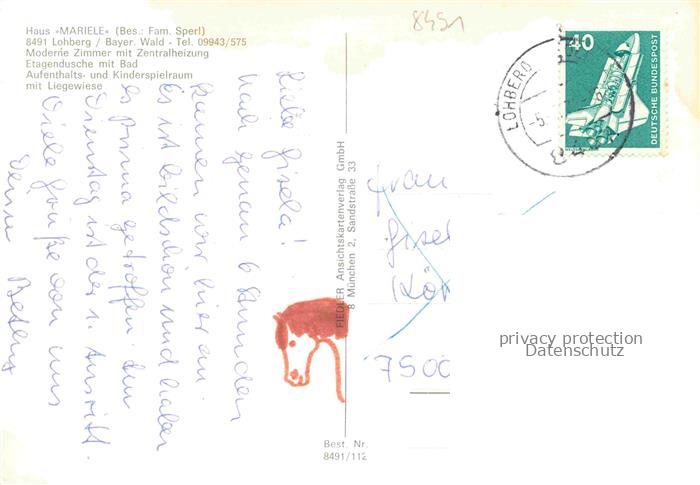 Haus »MARIELE« (Bes.: Fam. Sperl)
8491 Lohberg / Bayer. Wald - Tel. 09943/575
Moderne Zimmer mit Zentralheizung
Etagendusche mit Bad
Aufenthalts- und Kinderspielraum
mit Liegewiese
8491
Liebe Gisela!
Nach genau 6 Stunden
kamen wir hier an
Es ist bildschön und haben
es prima getroffen. Am
Dienstag ist der 1. Ausritt.
Viele Grüße von uns
Deine
FIEDLER Ansichtskartenverlag GmbH
8 München 2, Sandstraße 33
Best. Nr.
8491/112
LOHBERG
40
DEUTSCHE BUNDESPOST
Frau
Gisel
7500
privacy protection
Datenschutz